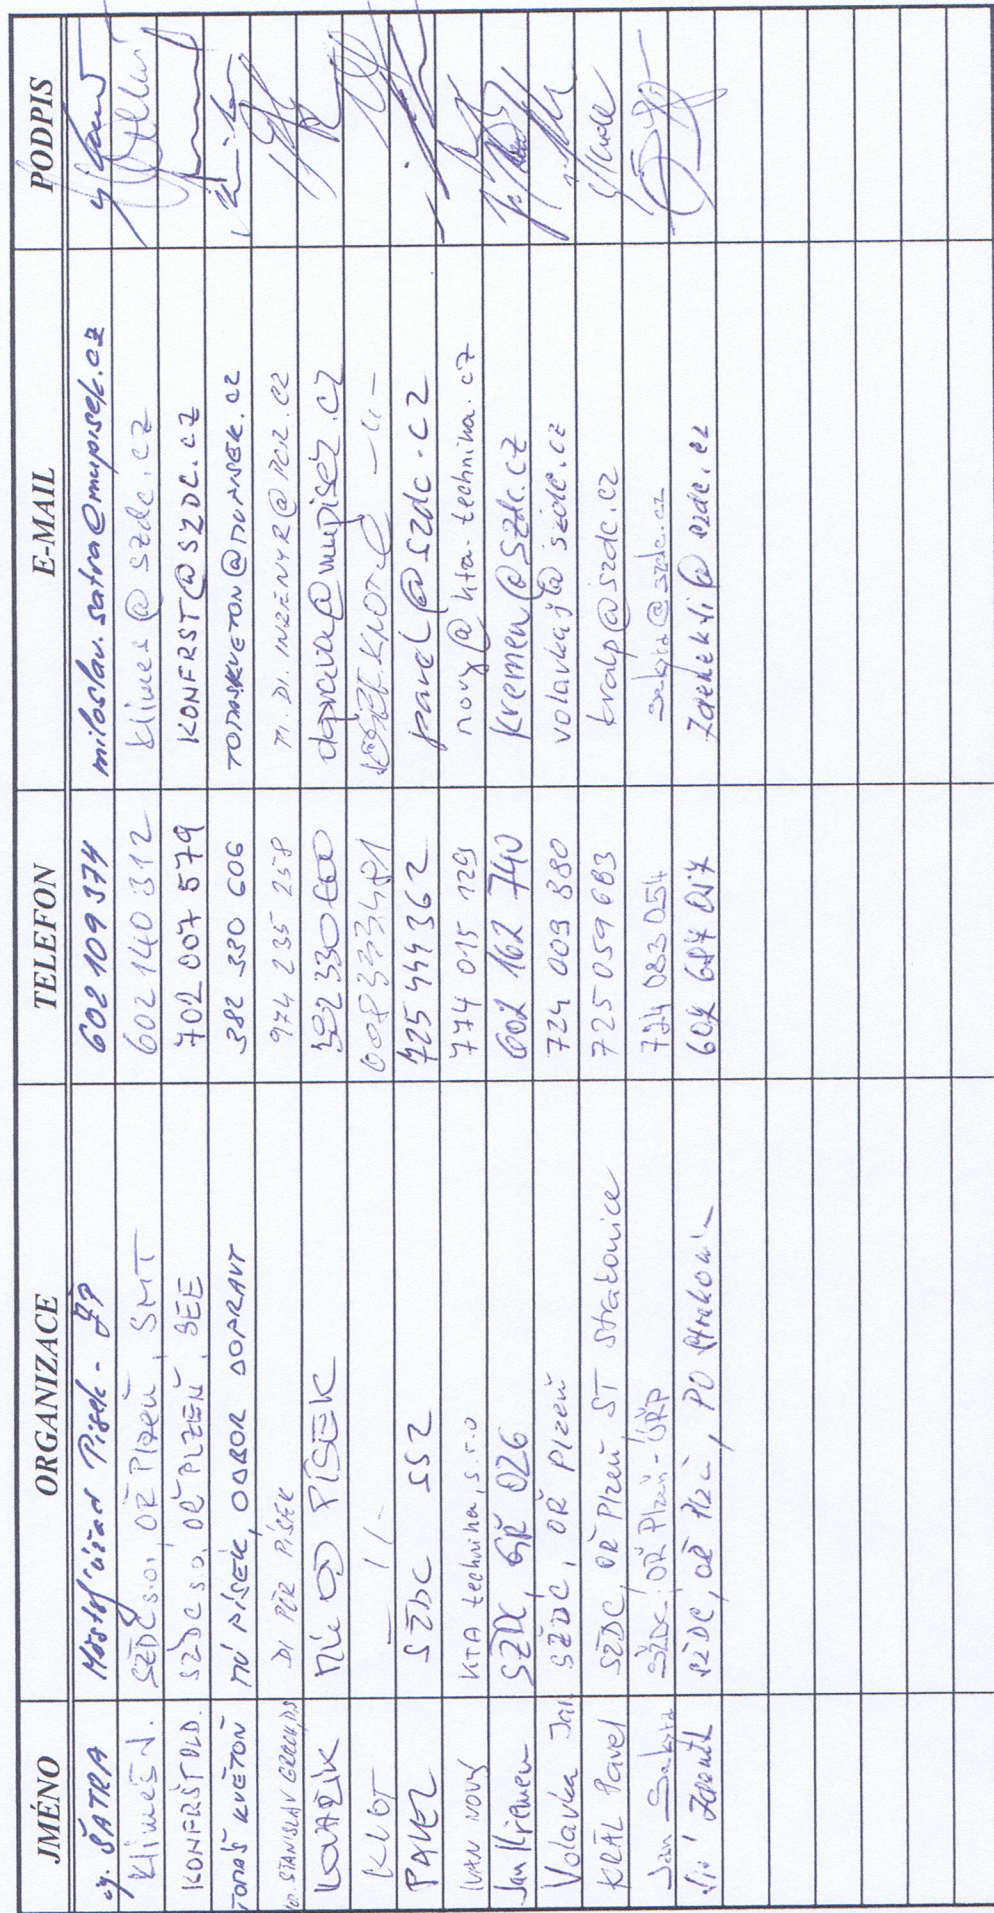 JMÉNO ORGANIZACE TELEFON E-MAIL PODPIS
ŠATRA Městský úřad Písek - 602 109 374 miloslav.satra@mupisek.cz
Klimeš J. SŽDC s.o., OŘ Plzeň, SMT 602 140 312 klimes@szdc.cz
KONFRŠT OLD. SŽDC s.o, OŘ PLZEŇ, SEE 702 007 579 KONFRST@SZDC.CZ
TOMÁŠ KVĚTOŇ MÚ PÍSEK, ODBOR DOPRAVY 382 330 606
STANISLAV DI PČR PÍSEK 974 235 258 PI.DI.INZENYR@PCR.CZ
KOVAŘÍK MÚ OD PÍSEK doprava@mupisek.cz
KNOT -11- -11-
PAVEL SŽDC SSZ 725 444 362 pavel@szdc.cz
IVAN NOVÝ KTA technika, s.r.o 774 015 129 novy@kta-technika.cz
Jan Křemen SŽDC, GŘ O26 602 162 740 kremen@szdc.cz
Volavka Jan SŽDC, OŘ Plzeň 724 009 880 volavkaj@szdc.cz
KRÁL Pavel SŽDC, OŘ Plzeň ST Strakonice 725 059 683 kralp@szdc.cz
Jan SŽDC, OŘ Plzeň - ÚŘP 724 083 054
SŽDC, OŘ Plzeň, PO